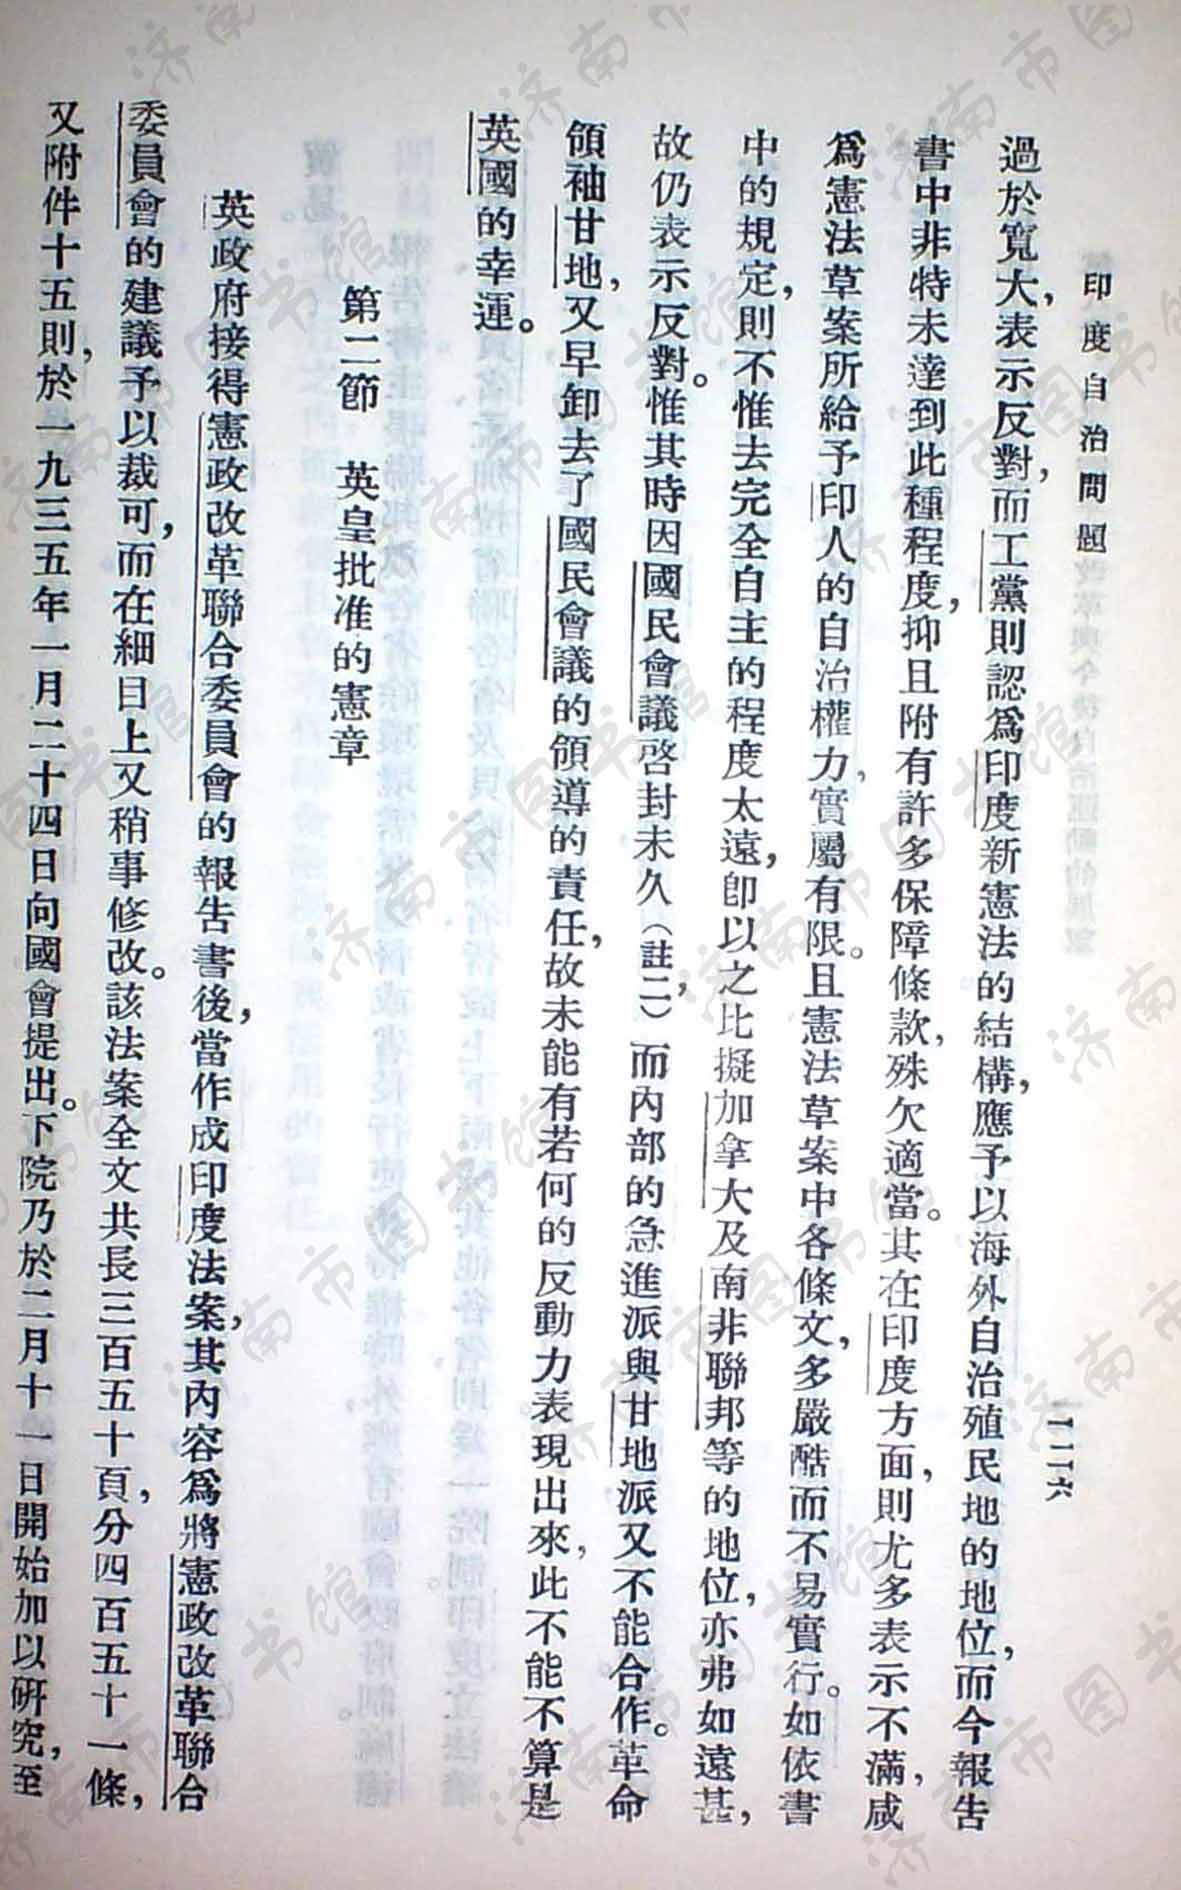 印度自治問題
一二六
過於寬大，表示反對，而工黨則認爲印度新憲法的結構，應予以海外自治殖民地的地位，而今報告
書中非特未達到此種程度，抑且附有許多保障條款，殊欠適當。其在印度方面，則尤多表示不滿，咸
爲憲法草案所給予印人的自治權力，實屬有限。且憲法草案中各條文，多嚴酷而不易實行。如依書
中的規定，則不惟去完全自主的程度太遠，卽以之比擬加拿大及南非聯邦等的地位，亦弗如遠甚，
故仍表示反對。惟其時因國民會議啓封未久（註二），而內部的急進派與甘地派又不能合作。革命
領袖甘地，又早卸去了國民會議的領導的責任，故未能有若何的反動力表現出來，此不能不算是
英國的幸運。
第二節　英皇批准的憲章
英政府接得憲政改革聯合委員會的報告書後，當作成印度法案，其內容爲將憲政改革聯合
委員會的建議予以裁可，而在細目上又稍事修改。該法案全文共長三百五十頁，分四百五十一條，
又附件十五則，於一九三五年一月二十四日向國會提出。下院乃於二月十一日開始加以研究，至
济南市图书馆